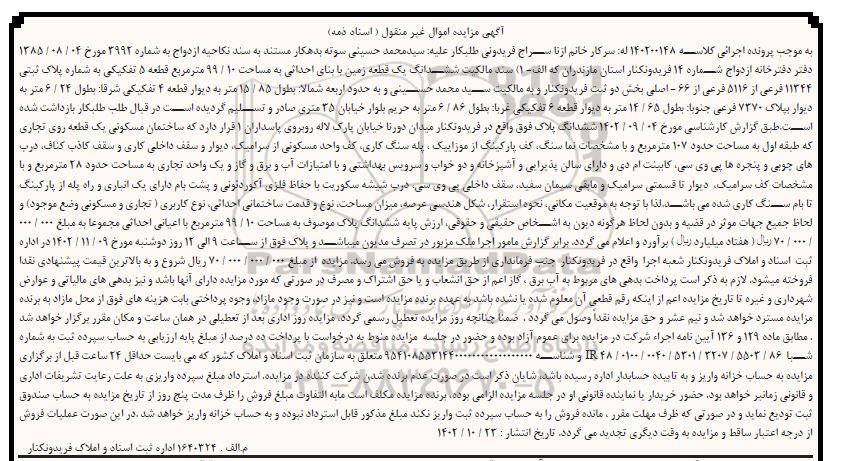 آگهی مزایده اموال غیر منقول ( اسناد ذمه)
به موجب پرونده اجرائی کلاسه ۱۴۰۲۰۰۱۴۸ له: سرکار خانم ازنا سراج فریدونی طلبکار علیه: سیدمحمد حسینی سوته بدهکار مستند به سند نکاحیه ازدواج به شماره ۳۹۹۲ مورخ ۰۴ / ۰۸ / ۱۳۸۵
دفتر دفترخانه ازدواج شماره ۱۴ فریدونکنار استان مازندران که الف-۱) سند مالکیت ششدانگ یک قطعه زمین با بنای احداثی به مساحت ۱۰ / ۹۹ مترمربع قطعه ۵ تفکیکی به شماره پلاک ثبتی
۱۱۳۴۴ فرعی از ۵۱۱۶ فرعی از ۶۶ - اصلی بخش دو ثبت فریدونکنار و به مالکیت سید محمد حسینی و به حدود اربعه شمالا: بطول ۸۵ / ۱۵ متر به دیوار قطعه ۴ تفکیکی شرقا: بطول ۲۴ / ۶ متر به
دیوار بپلاک ۷۳۷۰ فرعی جنوبا: بطول ۶۵ / ۱۴ متر به دیوار قطعه ۶ تفکیکی غربا: بطول ۸۶ / ۶ متر به حریم بلوار خیابان ۳۵ متری صادر و تسلیم گردیده است در قبال طلب طلبکار بازداشت شده
است.طبق گزارش کارشناسی مورخ ۰۴ / ۰۹ / ۱۴۰۲ ششدانگ پلاک فوق واقع در فریدونکنار میدان دورنا خیابان پارک لاله روبروی پاسداران ۱ قرار دارد که ساختمان مسکونی یک قطعه روی تجاری
که طبقه اول به مساحت حدود ۱۰۷ مترمربع و با مشخصات نما سنگ، کف پارکینگ از موزاییک ، پله سنگ کاری، کف واحد مسکونی از سرامیک، دیوار و سقف داخلی کاری و سقف کاذب کناف، درب
های چوبی و پنجره ها پی وی سی، کابینت ام دی و دارای سالن پذیرایی و آشپزخانه و دو خواب و سرویس بهداشتی و با امتیازات آب و برق و گاز و یک واحد تجاری به مساحت حدود ۲۸ مترمربع و با
مشخصات کف سرامیک، دیوار تا قسمتی سرامیک و مابقی سیمان سفید، سقف داخلی پی وی سی، درب شیشه سکوریت با حفاظ فلزی آکوردئونی و پشت بام دارای یک انباری و راه پله از پارکینگ
تا بام سنگ کاری شده می باشد.لذا با توجه به موقعیت مکانی، نحوه استقرار، شکل هندسی عرصه، میزان مساحت، نوع و قدمت ساختمانی احداثی، نوع کاربری ( تجاری و مسکونی وضع موجود) و
لحاظ جمیع جهات موثر در قضیه و بدون لحاظ هرگونه دیون به اشخاص حقیقی و حقوقی، ارزش پایه ششدانگ پلاک موصوف به مساحت ۱۰ / ۹۹ مترمربع با اعیانی احداثی مجموعا به مبلغ ۰۰۰ / ۰۰۰
/ ۰۰۰ / ۷۰ ریال ( هفتاد میلیارد ریال ) برآورد و اعلام می گردد. برابر گزارش مامور اجرا ملک مزبور در تصرف مدیون میباشد و پلاک فوق از ساعت ۹ الی ۱۲ روز دوشنبه مورخ ۰۹ / ۱۱ / ۱۴۰۲ در اداره
ثبت اسناد و املاک فریدونکنار شعبه اجرا واقع در فریدونکنار- جنب فرمانداری از طریق مزایده به فروش می رسد. مزایده از مبلغ ۰۰۰ / ۰۰۰ / ۰۰۰ / ۷۰ ریال شروع و به بالاترین قیمت پیشنهادی نقدا
فروخته میشود. لازم به ذکر است پرداخت بدهی های مربوط به آب برق ، گاز اعم از حق انشعاب و یا حق اشتراک و مصرف در صورتی که مورد مزایده دارای آنها باشد و نیز بدهی های مالیاتی و عوارض
شهرداری و غیره تا تاریخ مزایده اعم از اینکه رقم قطعی آن معلوم شده یا نشده باشد به عهده برنده مزایده است و نیز در صورت وجود مازاد، وجوه پرداختی بابت هزینه های فوق از محل مازاد به برنده
مزایده مسترد خواهد شد و نیم عشر و حق مزایده نقداً وصول می گردد ، ضمنا چنانچه روز مزایده تعطیل رسمی گردد، مزایده روز اداری بعد از تعطیلی در همان ساعت و مکان مقرر برگزار خواهد شد
. مطابق ماده ۱۲۹ و ۱۳۶ آیین نامه اجراء شرکت در مزایده برای عموم آزاد بوده و حضور در جلسه مزایده منوط به درخواست یا پرداخت ده درصد از مبلغ پایه ارزیابی به حساب سپرده ثبت به شماره
شبا ۸۶ / ۵۵۰۳ / ۳۲۰۷ / ۵۳۰۱ / ۰۰۴۰ / ۰۱۰۰ / IR ۴۸ و شناسه متعلق به سازمان ثبت اسناد و املاک کشور که می بایست حداقل ۲۴ ساعت قبل از برگزاری
مزایده به حساب خزانه واریز و به تاییده حسابدار اداره رسیده باشد. شایان ذکر است در صورت عدم برنده شدن شرکت کننده در مزایده، استرداد مبلغ سپرده واریزی به علت رعایت تشریفات اداری
و قانونی زمانبر خواهد بود. حضور خریدار یا نماینده قانونی او در جلسه مزایده الزامی بوده، برنده مزایده مکلف است مابه التفاوت مبلغ فروش را ظرف مدت پنج روز از تاریخ مزایده به حساب صندوق
ثبت تودیع نماید و در صورتی که ظرف مهلت مقرر ، مانده فروش را به حساب سپرده ثبت واریز نکند مبلغ مذکور قابل استرداد نبوده و به حساب خزانه واریز خواهد شد ،در این صورت عملیات فروش
از درجه اعتبار ساقط و مزایده به وقت دیگری تجدید می گردد. تاریخ انتشار : ۲۳ / ۱۰ / ۱۴۰۲
م.الف . ۱۶۴۰۳۲۴ اداره ثبت اسناد و املاک فریدونکنار
ParsNamadData
۰۲۱-۸۸۳۴۹۶۷۰-۵